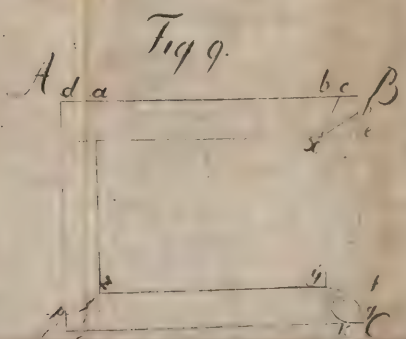 Fig 9.
A d a b c B
x e
y f
g
C